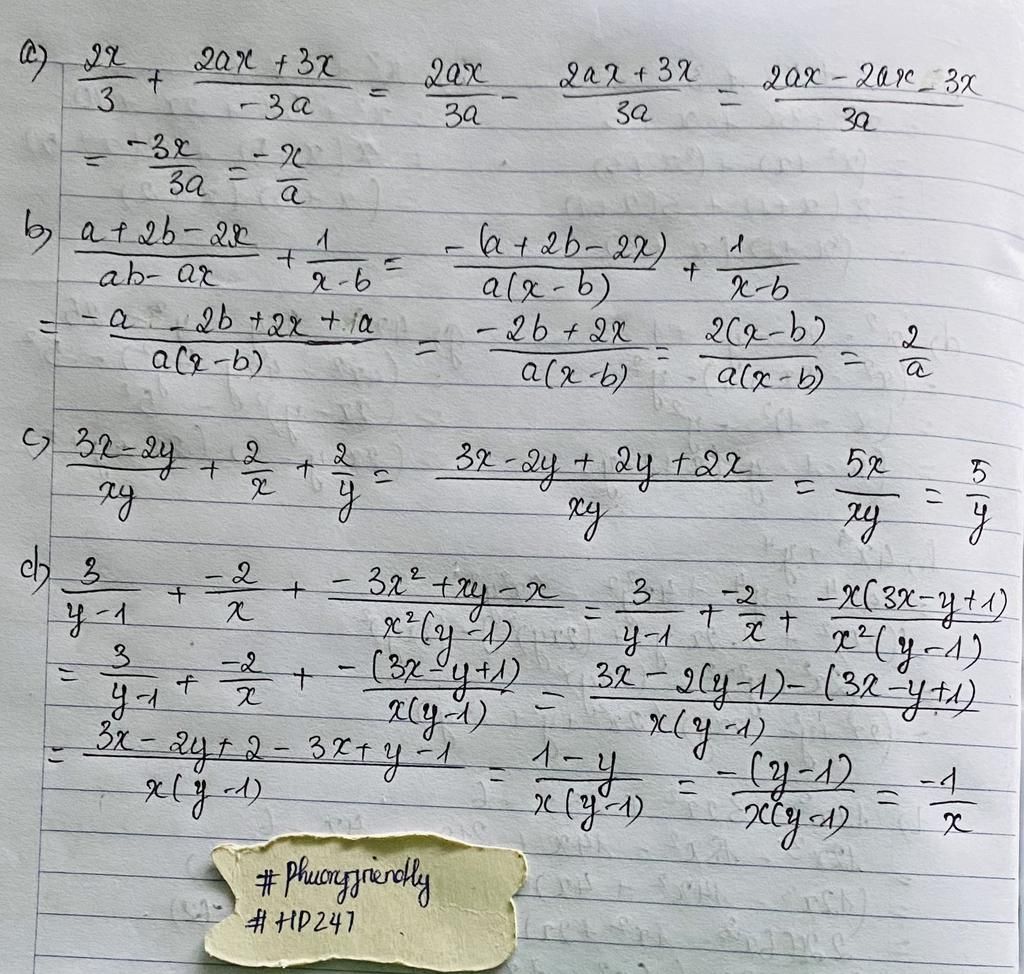 a) 2x/3 + (2ax + 3x)/(-3a) = 2ax/3a - (2ax + 3x)/3a = (2ax - 2ax - 3x)/3a
= -3x/3a = -x/a
b) (a + 2b - 2x)/(ab - ax) + 1/(x - b) = -(a + 2b - 2x)/a(x - b) + 1/(x - b)
= (-a - 2b + 2x + a)/a(x - b) = (-2b + 2x)/a(x - b) = 2(x - b)/a(x - b) = 2/a
c) (3x - 2y)/xy + 2/x + 2/y = (3x - 2y + 2y + 2x)/xy = 5x/xy = 5/y
d) 3/(y - 1) + -2/x + (-3x² + xy - x)/x²(y - 1) = 3/(y - 1) + -2/x + -x(3x - y + 1)/x²(y - 1)
= 3/(y - 1) + -2/x + -(3x - y + 1)/x(y - 1) = (3x - 2(y - 1) - (3x - y + 1))/x(y - 1)
= (3x - 2y + 2 - 3x + y - 1)/x(y - 1) = (1 - y)/x(y - 1) = -(y - 1)/x(y - 1) = -1/x
#HD247